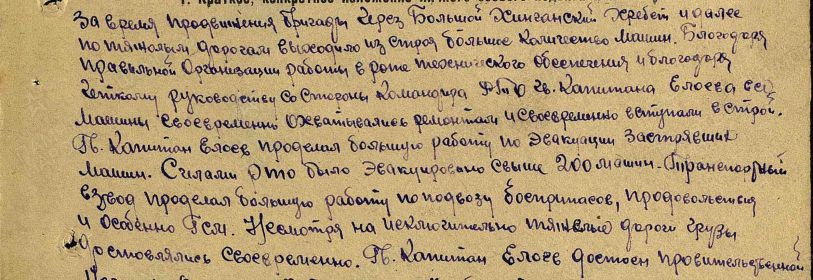 1. Краткое, конкретное изложение
За время продвижения Бригады через Большой Хинганский Хребет и далее
по тяжолым дорогам выходило из строя большое количество машин. Благодаря
правильной организации работы в роте технического обеспечения и благодаря
четкому руководству со стороны командира РТО Гв. Капитана Елоева все
машины своевременно охватывались ремонтом и своевременно вступали в строй.
Гв. Капитан Елоев проделал большую работу по эвакуации застрявших
машин. Силами РТО было эвакуировано свыше 200 машин. Транспортный
взвод проделал большую работу по подвозу боеприпасов, продовольствия
и особенно Гсм. Несмотря на исключительно тяжелые дороги грузы
доставлялись своевременно. Гв. Капитан Елоев достоен правительственной